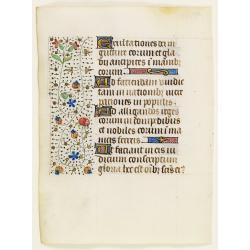 Exultationes dei in
gutture eorum et gla
dii ancipites i manib
eorum.
Ad faciendam vindic
tam in nationib incre
pationes in populis.
Ad alligandos reges
eorum in compedibus
et nobiles eorum i ma
nicis ferreis.
Ut faciant in eis iu
dicium conscriptum
gloria hec est oib scis ei